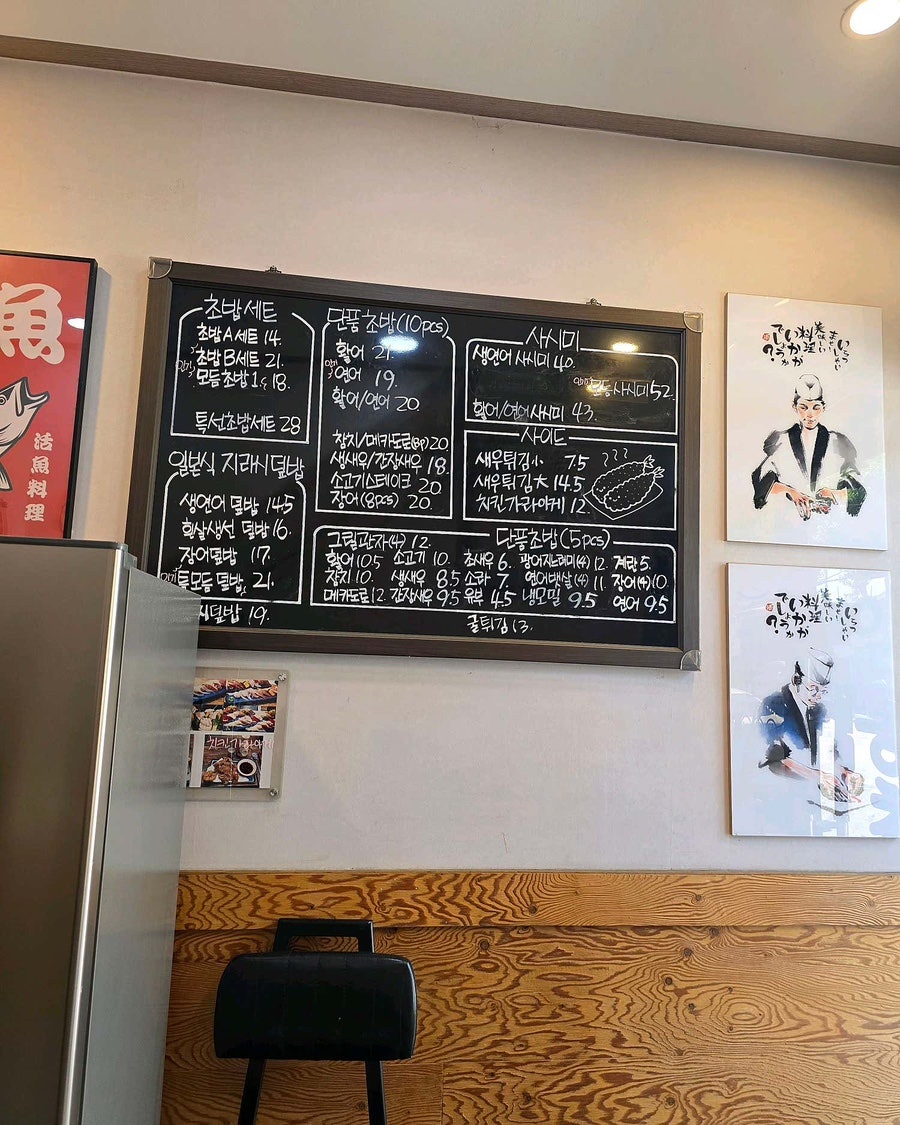 魚
活魚料理
초밥세트
초밥A세트 14.
초밥B세트 21.
모듬초밥 18.
특선초밥세트 28
일본식 지라시덮밥
생연어 덮밥 14.5
흰살생선 덮밥 16.
장어덮밥 17.
특모듬 덮밥 21.
덮밥 19.
단품초밥(10pcs)
활어 21.
연어 19.
활어/연어 20
참치/메카도로(8p) 20
생새우/간장새우 18.
소고기스테이크 20
장어(8pcs) 20.
사시미
생연어 사시미 40.
모듬사시미 52.
활어/연어 사시미 43.
사이드
새우튀김 小 7.5
새우튀김 大 14.5
치킨가라아게 12.
단품초밥(5pcs)
그릴관자(4) 12.
활어 10.5 소고기 10. 초새우 6. 광어지느러미(4) 12. 계란 5.
참치 10. 생새우 8.5 소라 7. 연어뱃살(4) 11. 장어(4) 10.
메카도로 12. 간장새우 9.5 유부 4.5 냉모밀 9.5 연어 9.5
굴튀김 13.
치킨가라아게
いらっ
しゃい
ませ
美味しい
料理
いかが
でしょうか?
いらっ
しゃい
ませ
美味しい
料理
いかが
でしょうか?